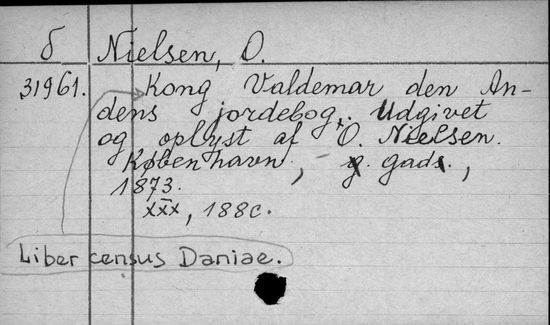 δ Nielsen, O.
31961. Kong Valdemar den An-
dens jordebog, Udgivet
og oplyst af O. Nielsen.
København, - g. gads.,
1873.
XXX, 188c.
Liber census Daniae.